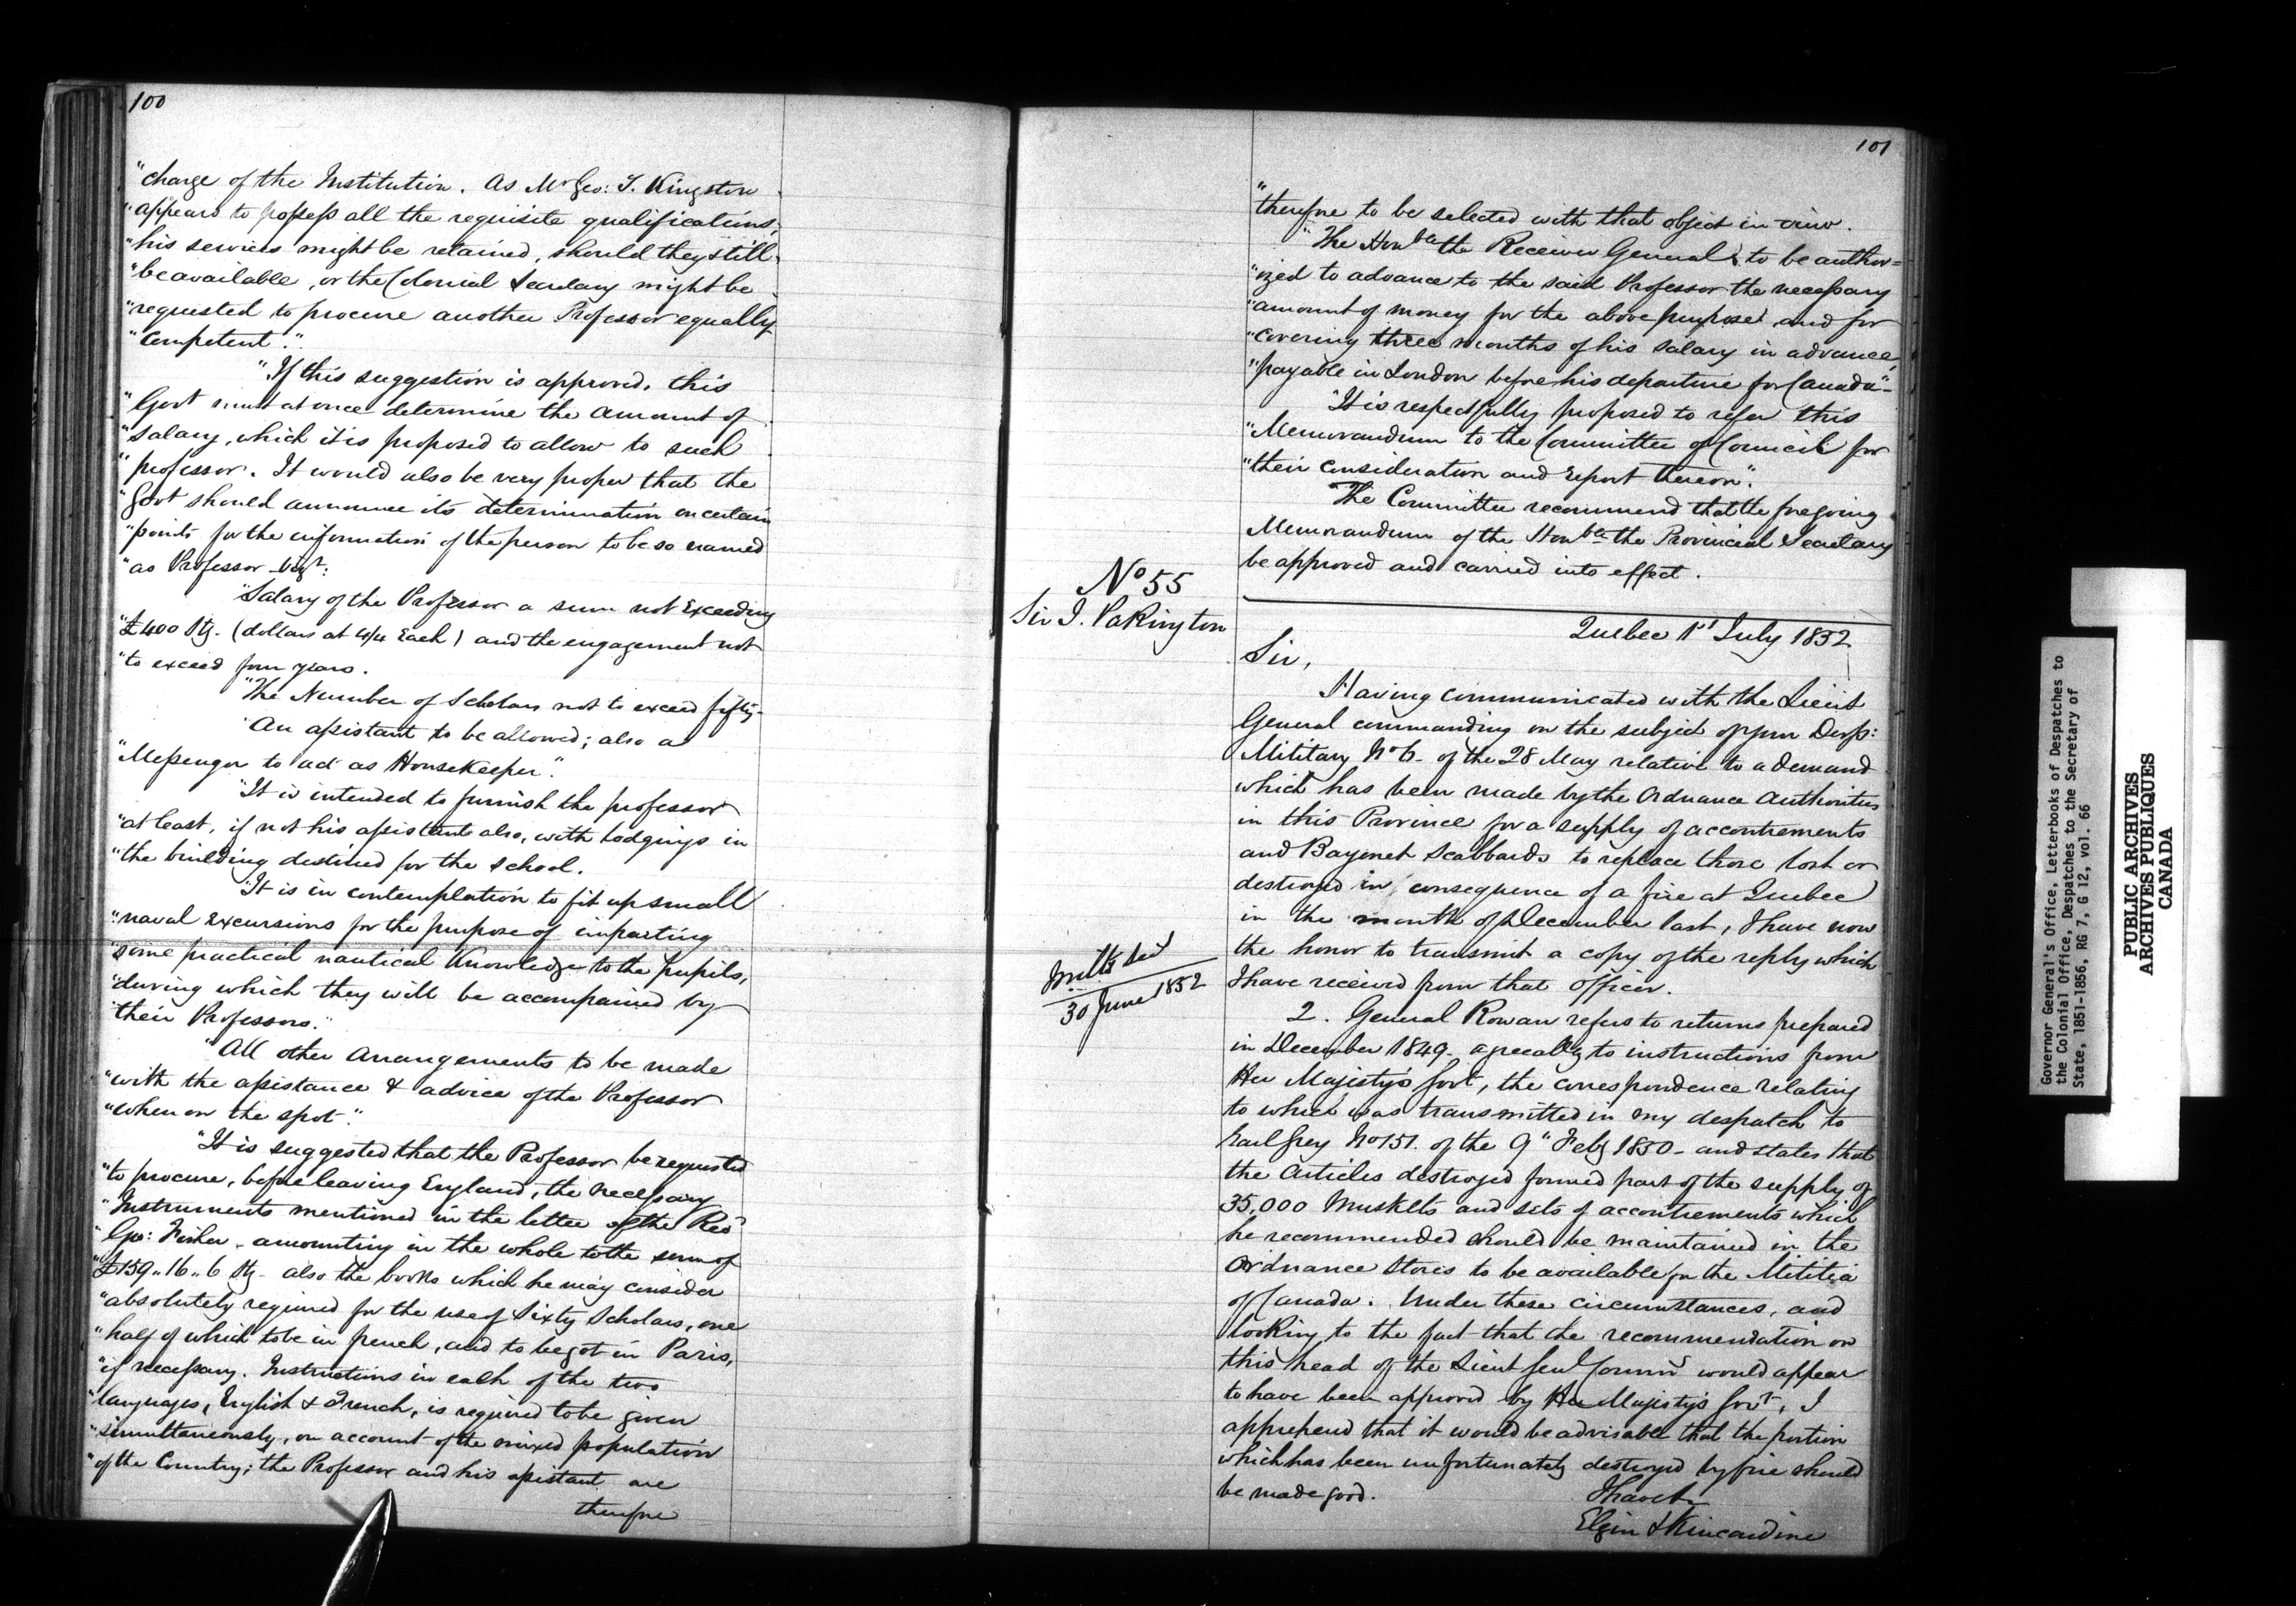 100
"charge of the Institution. As Mr Geo: T. Kingston
"appears to possess all the requisite qualifications,
"his services might be retained, should they still
"be available, or the Colonial Secretary might be
"requested to procure another Professor equally
"competent."
"If this suggestion is approved, this
"Govt must at once determine the amount of
"salary, which it is proposed to allow to such
"professor. It would also be very proper that the
"Govt should announce its determination on certain
"points for the information of the person to be so named
"as Professor Vizt:
"Salary of the Professor a sum not Exceeding
"£400 Stg. (dollars at 4/4 Each) and the engagement not
"to exceed four years.
"The Number of Scholars not to exceed fifty-
"An assistant to be allowed; also a
"Messenger to act as Housekeeper".
"It is intended to furnish the professor
"at least, if not his assistant also, with lodgings in
"the building destined for the School.
"It is in contemplation to fit up small
"naval excursions for the purpose of imparting
"some practical nautical Knowledge to the pupils,
"during which they will be accompanied by
"their Professors."
"All other arrangements to be made
"with the assistance & advice of the Professor
"when on the spot".
"It is suggested that the Professor be requested
"to procure, before leaving England, the necessary
"Instruments mentioned in the letter of the Revd
"Geo: Fisher - amounting in the whole to the sum of
"£159..16..6 Stg - also the books which he may consider
"absolutely required for the use of Sixty Scholars, one
"half of which to be in french, and to be got in Paris,
"if necessary. Instructions in each of the two
"languages, English & French, is required to be given
"simultaneously, on account of the mixed population
"of the Country; the Professor and his assistant are
therefore
101
"therefore to be selected with that object in view.
"The Honble the Receiver General to be author=
"ized to advance to the said Professor the necessary
"amount of money for the above purpose and for
"covering three months of his salary in advance,
"payable in London before his departure for Canada"-
"It is respectfully proposed to refer this
"Memorandum to the Committee of Council for
"their consideration and report thereon".
The Committee recommend that the foregoing
Memorandum of the Honble the Provincial Secretary
be approved and carried into effect.
No 55
Sir J. Pakington
Quebec 1st July 1852
Sir,
Having communicated with the Lieut
General commanding on the subject of your Desp:
Military No 6- of the 28 May relative to a demand
which has been made by the Ordnance Authorities
in this Province for a supply of accoutrements
and Bayonet Scabbards to replace those lost or
destroyed in consequence of a fire at Quebec
in the month of December last, I have now
the honor to transmit a copy of the reply which
I have received from that Officer.
30 June 1852
2. General Rowan refers to returns prepared
in December 1849 - agreeably to instructions from
Her Majesty's Govt, the correspondence relating
to which was transmitted in my despatch to
Earl Grey No 151. of the 9" Feby 1850 - and states that
the Articles destroyed formed part of the supply of
35,000 Muskets and sets of accoutrements which
he recommended should be maintained in the
Ordnance Stores to be available for the Militia
of Canada. Under these circumstances, and
looking to the fact that the recommendation on
this head of the Lieut Genl Commg would appear
to have been approved by Her Majesty's Govt, I
apprehend that it would be advisable that the portion
which has been unfortunately destroyed by fire should
be made good.
I have &c
Elgin & Kincardine
Governor General's Office, Letterbooks of Despatches to
the Colonial Office, Despatches to the Secretary of
State, 1851-1856, RG 7, G 12, vol. 66
PUBLIC ARCHIVES
ARCHIVES PUBLIQUES
CANADA